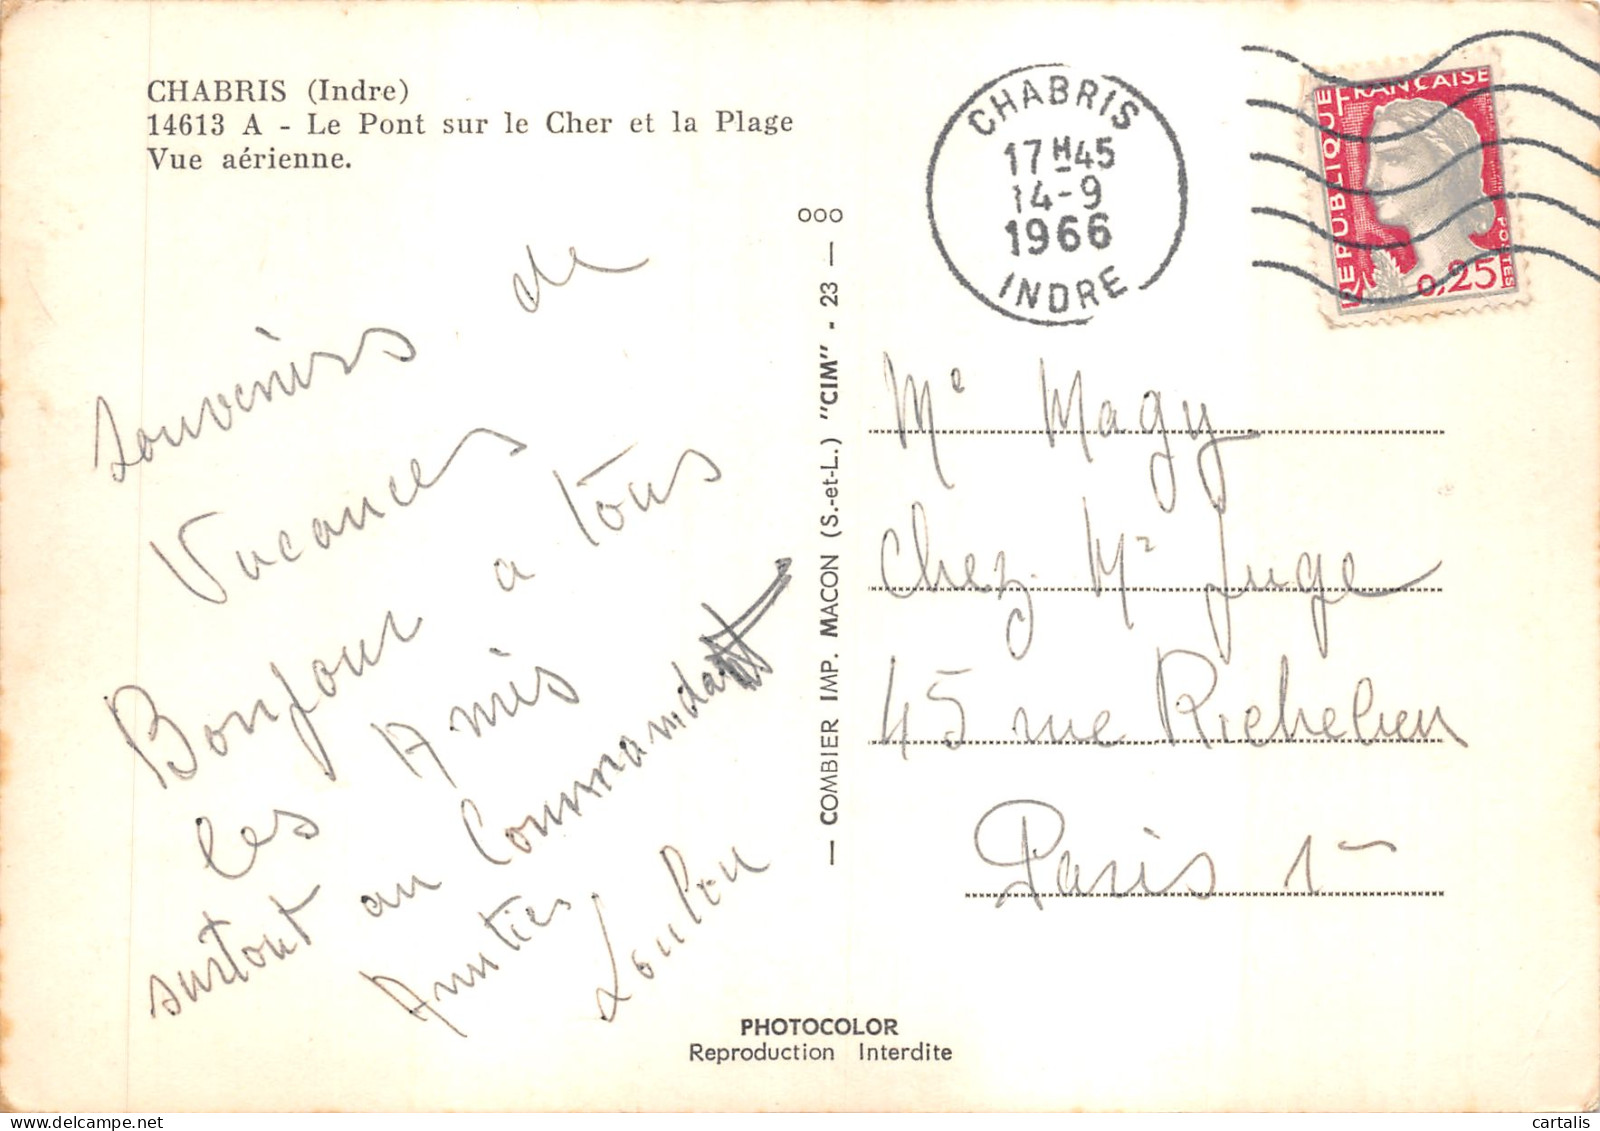 CHABRIS (Indre)
14613 A - Le Pont sur le Cher et la Plage
Vue aérienne.
CHABRIS
17 H 45
14-9
1966
INDRE
REPUBLIQUE FRANÇAISE
POSTES
0,25
souvenirs de
Vacances
Bonjour a tous
les Amis
surtout au Commandant
Amitiés
Loulou
ooo
— COMBIER IMP. MACON (S.-et-L.) "CIM" - 23 —
Me Magy
chez Mr Juge
45 rue Richelieu
Paris 1
PHOTOCOLOR
Reproduction Interdite
cartalis
delcampe.net